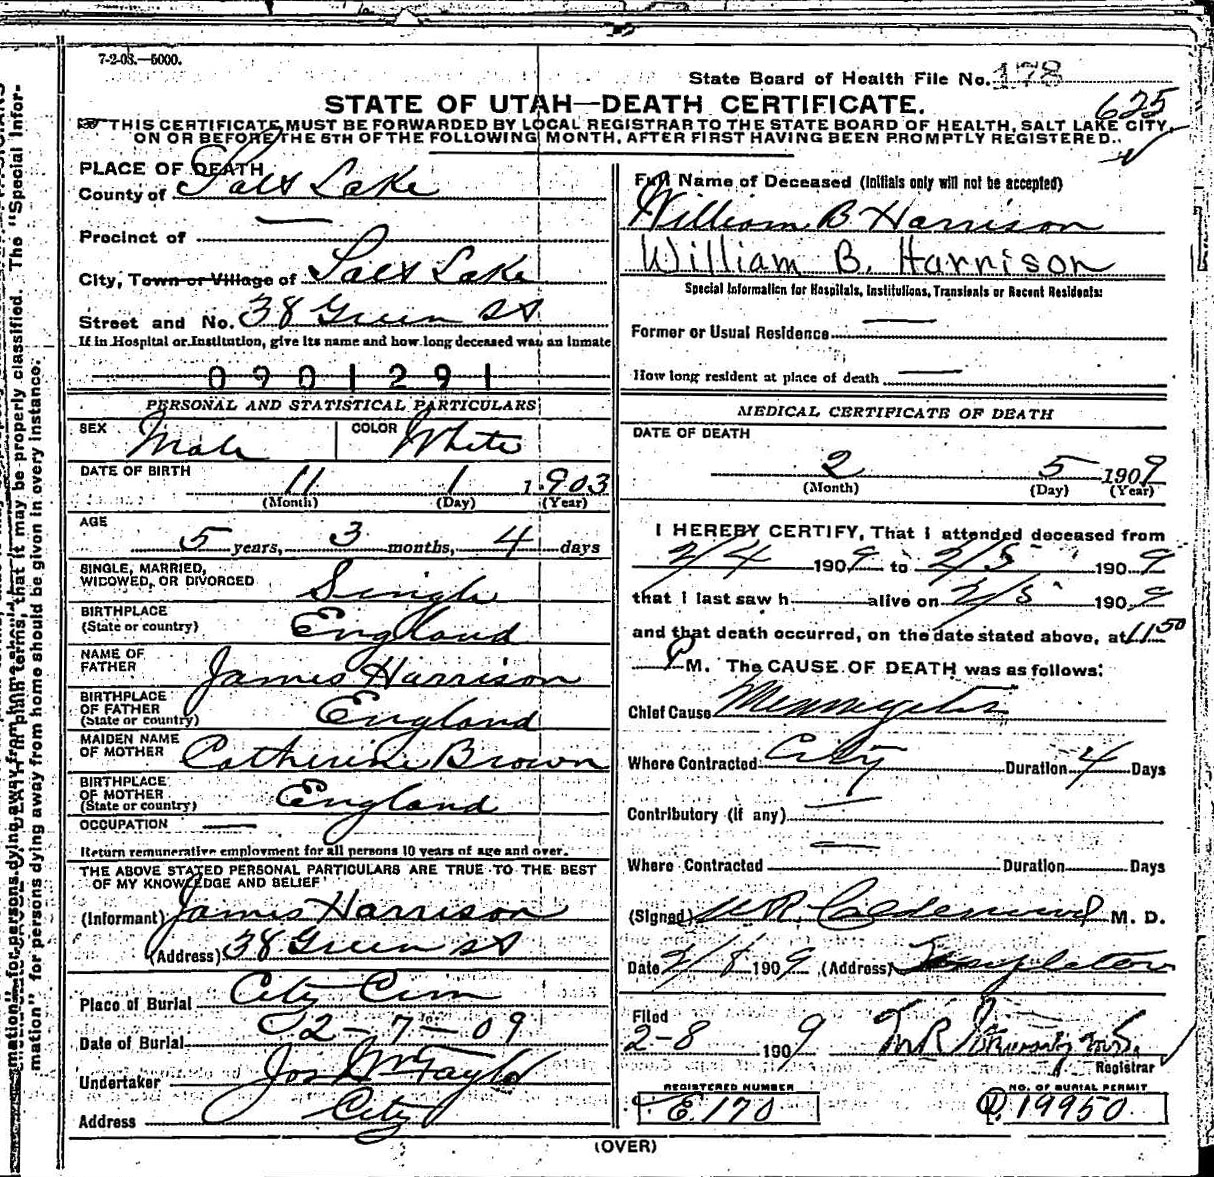 7-2-08.—5000.
State Board of Health File No. 178
STATE OF UTAH—DEATH CERTIFICATE.
625
THIS CERTIFICATE MUST BE FORWARDED BY LOCAL REGISTRAR TO THE STATE BOARD OF HEALTH, SALT LAKE CITY,
ON OR BEFORE THE 5TH OF THE FOLLOWING MONTH, AFTER FIRST HAVING BEEN PROMPTLY REGISTERED.
PLACE OF DEATH
County of Salt Lake
Precinct of —
City, Town or Village of Salt Lake
Street and No. 38 Green St
If in Hospital or Institution, give its name and how long deceased was an inmate
0901291
PERSONAL AND STATISTICAL PARTICULARS
SEX Male COLOR White
DATE OF BIRTH 11 1 1903
(Month) (Day) (Year)
AGE
5 years, 3 months, 4 days
SINGLE, MARRIED,
WIDOWED, OR DIVORCED Single
BIRTHPLACE
(State or country) England
NAME OF
FATHER James Harrison
BIRTHPLACE
OF FATHER
(State or country) England
MAIDEN NAME
OF MOTHER Catherine Brown
BIRTHPLACE
OF MOTHER
(State or country) England
OCCUPATION —
Return remunerative employment for all persons 10 years of age and over.
THE ABOVE STATED PERSONAL PARTICULARS ARE TRUE TO THE BEST
OF MY KNOWLEDGE AND BELIEF
(Informant) James Harrison
(Address) 38 Green St
Place of Burial City Cem
Date of Burial 2-7-09
Undertaker Jos Wm Taylor
Address City
Full Name of Deceased (Initials only will not be accepted)
William B Harrison
William B. Harrison
Special Information for Hospitals, Institutions, Transients or Recent Residents:
Former or Usual Residence —
How long resident at place of death —
MEDICAL CERTIFICATE OF DEATH
DATE OF DEATH
2 5 1909
(Month) (Day) (Year)
I HEREBY CERTIFY, That I attended deceased from
2/4 1909 to 2/5 1909
that I last saw h alive on 2/5 1909
and that death occurred, on the date stated above, at 11 50
P M. The CAUSE OF DEATH was as follows:
Chief Cause Meningitis
Where Contracted City Duration 4 Days
Contributory (if any) —
Where Contracted — Duration Days
(Signed) W.R. Calderwood M. D.
Date 2/8 1909 (Address) Templeton
Filed
2-8 1909
Registrar
REGISTERED NUMBER
E 170
NO. OF BURIAL PERMIT
D. 19950
(OVER)
mation" for persons dying away from home should be given in every instance.
that it may be properly classified. The "Special Infor-